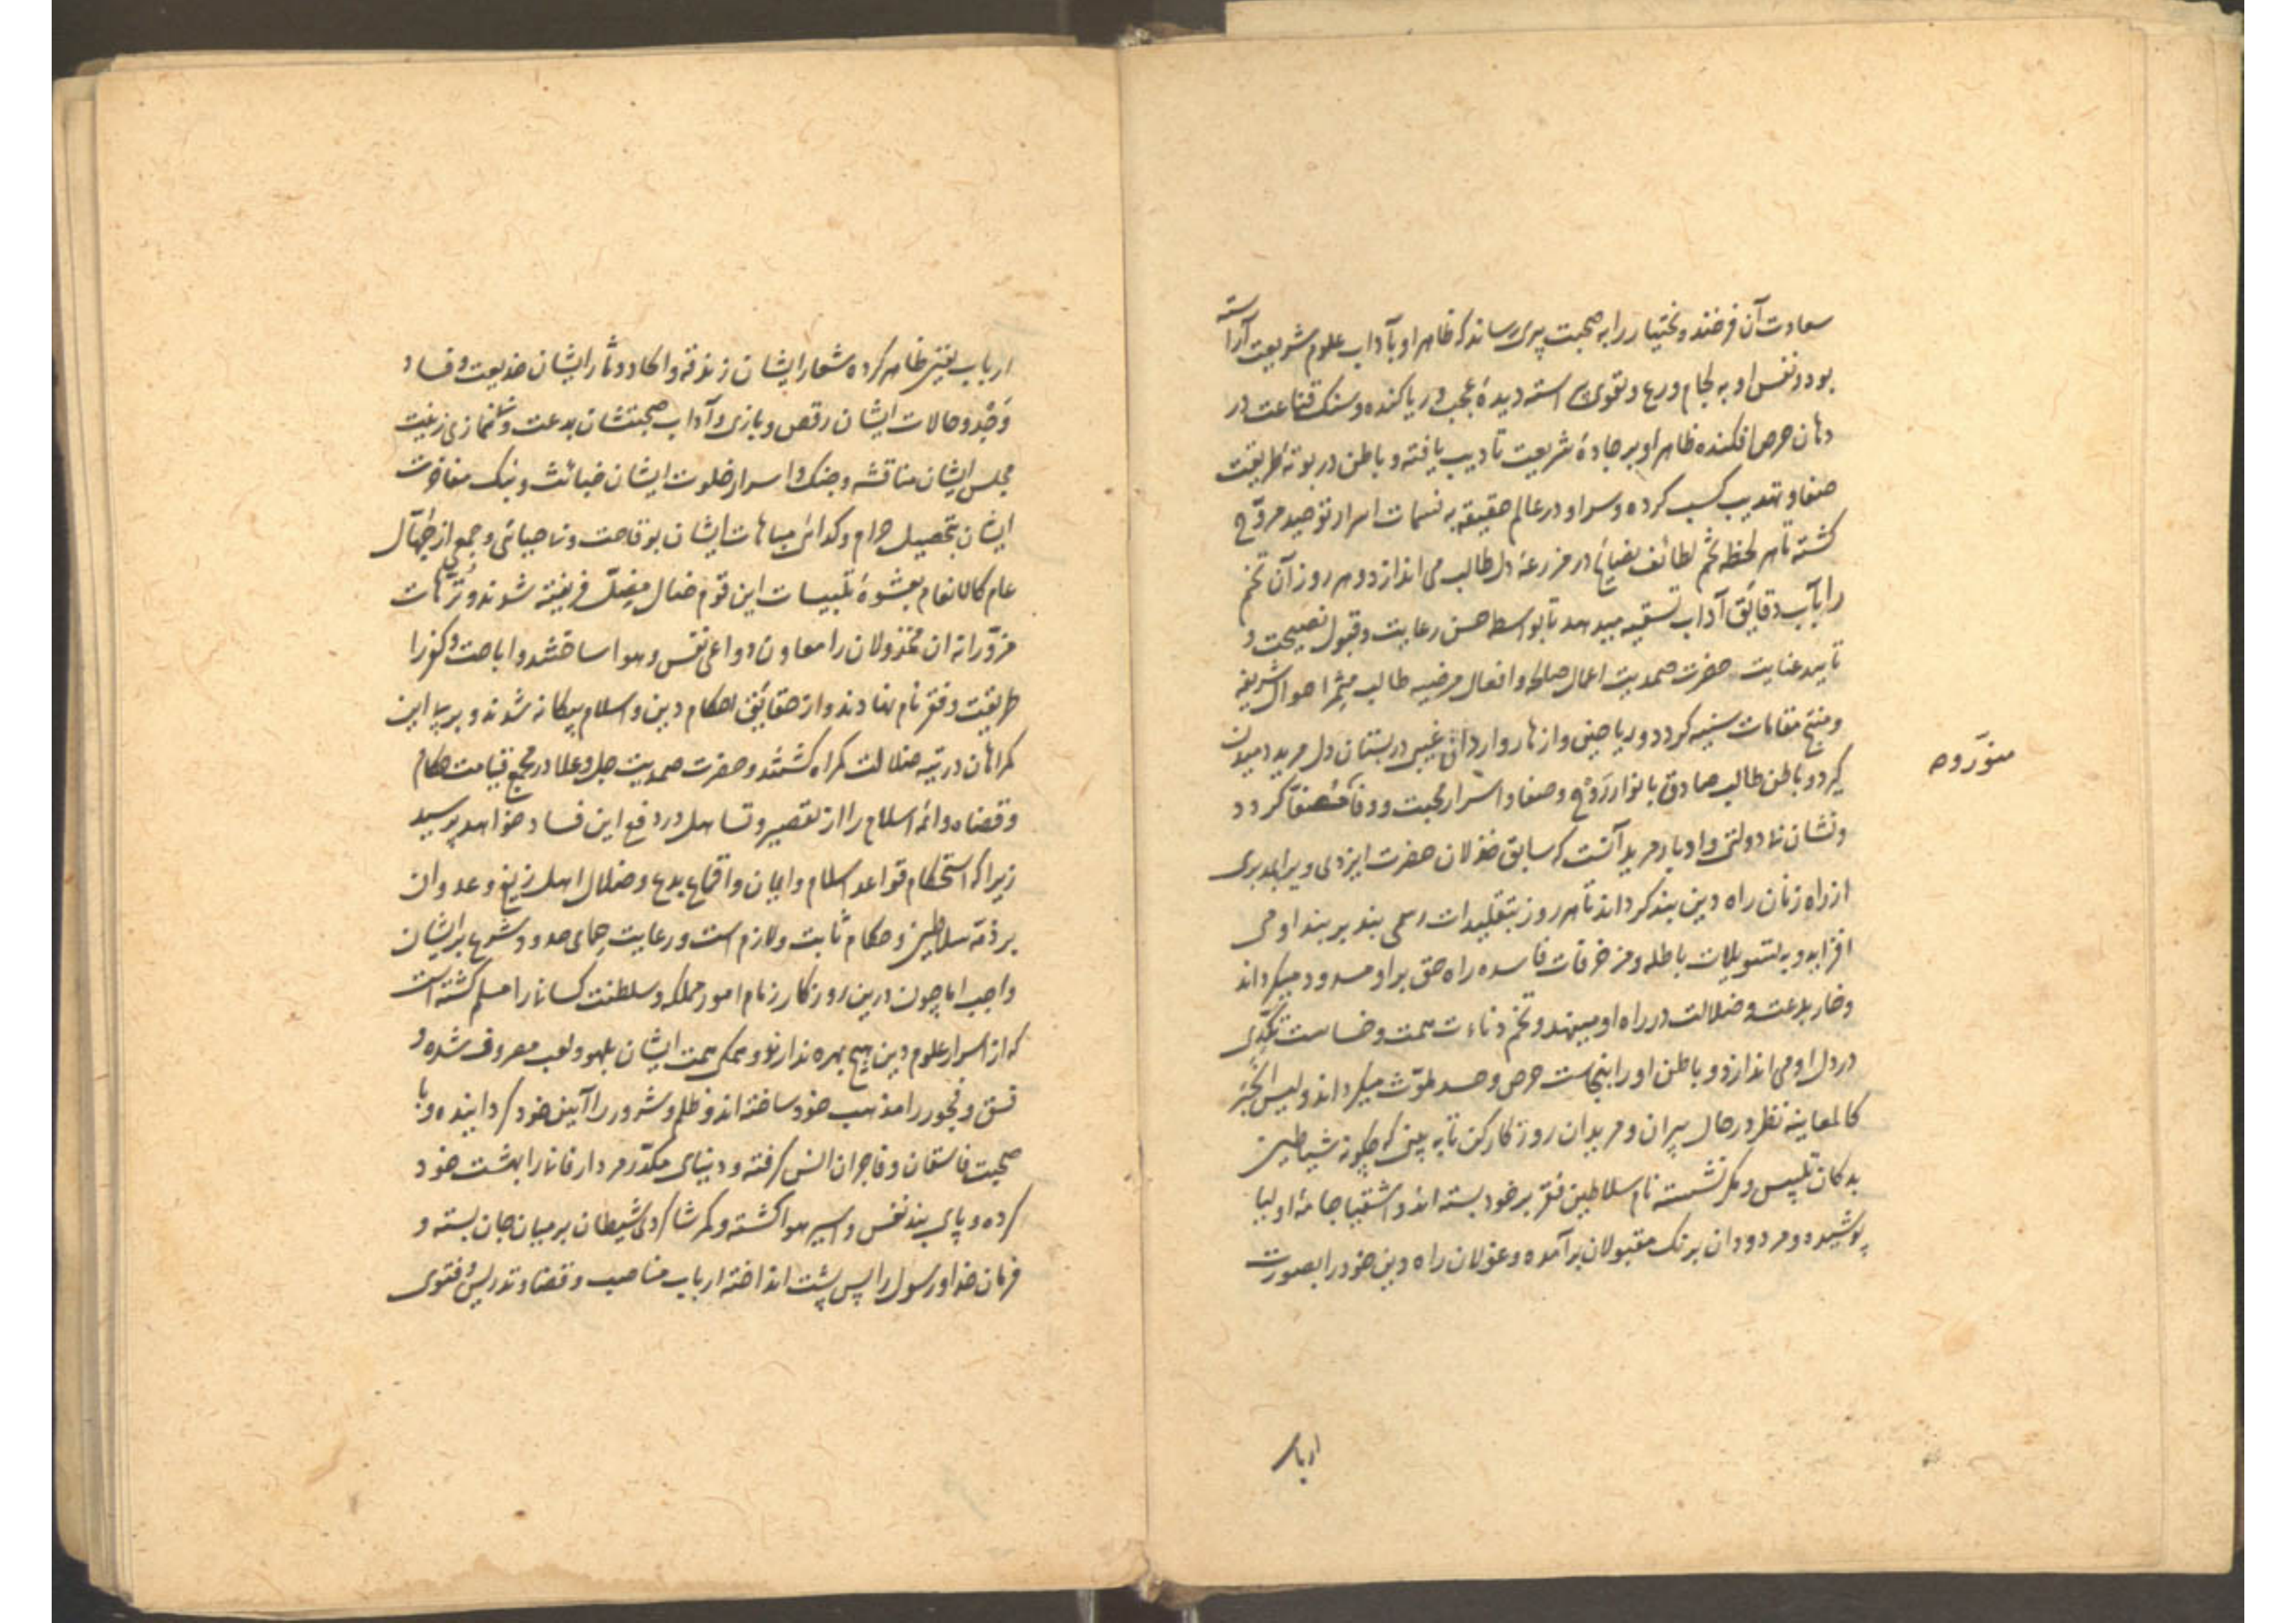 سعادت آن فرخنده بختیار را به صحبت پیری رساند که ظاهر او بآداب علوم شریعت آراسته
بود و نفس او به لجام ورع و تقوی آراسته دیدهٔ عجب و ریا کنده و سنک قناعت در
دهان حرص افکنده ظاهر او بر جادهٔ شریعت تادیب یافته و باطن در بوتهٔ طریقت
صفا و تهذیب کسب کرده و سر او در عالم حقیقة به نسمات اسرار توحید مروّح
کشته تا هر لحظه تخم لطائف نصایح در مزرعهٔ دل طالب می اندازد و هر روز آن تخم
را بآب دقایق آداب تسقیه میدهد تا بواسطه حسن رعایت و قبول نصیحت و
تایید عنایت حضرت صمدیت اعمال صالحه و افعال مرضیه طالب مثمر احوال شریفه
و منتج مقامات سنیه کردد و ریاحین و ازهار واردات غیبی در بستان دل مرید دمیدن
کیرد و باطن طالب صادق بانوار روح و صفا و اسرار محبت و وفا مصفّا کردد
منوّر و
و نشان نا دولتی و ادبار مرید آنست که سابق خذلان حضرت ایزدی ویرا بدبری
از راه زنان راه دین بند کرداند تا هر روز بتقلیدات رسمی بند بر بند او می
افزاید و به تسویلات باطله و مزخرفات فاسده راه حق بر او مسدود میکرداند
و خار بدعت و ضلالت در راه او مینهد و تخم دناءت همت و خساست تکدّی
در دل او می اندازد و باطن او را بنجاست حرص و حسد ملوّث میکرداند و لیس الخبر
کالمعاینه نظر در حال پیران و مریدان روزکار کن تا به بینی که چکونه شیاطین
بدکان تلبیس و مکر نشسته نام سلاطین فقر بر خود بسته اند و اشقیا جامهٔ اولیا
پوشیده و مردودان برنک مقبولان برآمده و غولان راه دین خود را بصورت
ارباب
ارباب یقین ظاهر کرده شعار ایشان زندقه و الحاد و دثار ایشان خدیعت و فساد
وَجْد و حالات ایشان رقص و بازی و آداب صحبتشان بدعت و غمازی زینت
مجلس ایشان مناقشه و جنک و اسرار خلوت ایشان خبائث و بنک مفاخرت
ایشان بتحصیل حرام و کدائی مباهات ایشان بوقاحت و نا حیائی و جمعی از جُهّال
عام کالانعام بعشوهٔ تلبیسات این قوم ضال مضلّ فریفته شوند و تُرّهات
مزوّرانه ان مخذولان را معاون دواعی نفس و هوا ساختند و اباحت و کفر را
طریقت و فقر نام نهادند و از حقایق احکام دین و اسلام بیکانه شوند و بر پی این
کمراهان در تیه ضلالت کمراه کشتند و حضرت صمدیت جل و علا در مجمع قیامت حکام
و قضاه و ائمه اسلام را از تقصیر و تساهل در دفع این فساد خواهد پرسید
زیرا که استحکام قواعد اسلام و ایمان و اقماع بدع و ضلال اهل زیغ و عدوان
بر ذمّه سلاطین و حکام ثابت و لازم است و رعایت حمای حدود شرع بر ایشان
واجب اما چون درین روزکار زمام امور مملکه و سلطنت کسانی را مسلم کشته است
که از اسرار علوم دین هیچ بهره ندارند و همکی همت ایشان بلهو و لعب مصروف شده و
فسق و فجور را مذهب خود ساخته اند و ظلم و شرور را آیین خود کردانیده و با
صحبت فاسقان و فاجران انس کرفته و دنیای مکدّر مردار فانی را بهشت خود
کرده و پای بند نفس و اسیر هوا کشته و کمر شاکردی شیطان بر میان جان بسته و
فرمان خدا و رسول را پس پشت انداخته ارباب مناصب و قضا و تدریس و فتوی